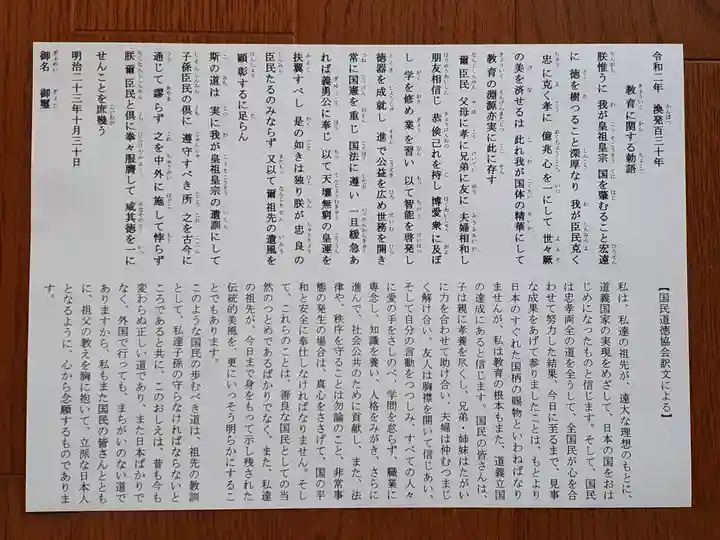 令和二年 渙発百三十年
教育に関する勅語
朕惟うに 我が皇祖皇宗 国を肇むること宏遠
に 徳を樹つること深厚なり 我が臣民克く
忠に克く孝に 億兆心を一にして 世々厥
の美を済せるは 此れ我が国体の精華にして
教育の淵源亦実に此に存す
爾臣民 父母に孝に兄弟に友に 夫婦相和し
朋友相信じ 恭倹己れを持し 博愛衆に及ぼ
し 学を修め業を習い 以て智能を啓発し
徳器を成就し 進で公益を広め世務を開き
常に国憲を重じ 国法に遵い 一旦緩急あ
れば義勇公に奉じ 以て天壌無窮の皇運を
扶翼すべし 是の如きは独り朕が忠良の
臣民たるのみならず 又以て爾祖先の遺風を
顕彰するに足らん
斯の道は 実に我が皇祖皇宗の遺訓にして
子孫臣民の倶に 遵守すべき所 之を古今に
通じて謬らず 之を中外に施して悖らず
朕爾臣民と倶に拳々服膺して 咸其徳を一に
せんことを庶幾う
明治二十三年十月三十日
御名 御璽
【国民道徳協会訳文による】
私は、私達の祖先が、遠大な理想のもとに、
道義国家の実現をめざして、日本の国をおは
じめになったものと信じます。そして、国民
は忠孝両全の道を全うして、全国民が心を合
わせて努力した結果、今日に至るまで、見事
な成果をあげて参りましたことは、もとより
日本のすぐれた国柄の賜物といわねばなり
ませんが、私は教育の根本もまた、道義立国
の達成にあると信じます。国民の皆さんは、
子は親に孝養を尽くし、兄弟、姉妹はたがい
に力を合わせて助け合い、夫婦は仲むつまじ
く解け合い、友人は胸襟を開いて信じあい、
そして自分の言動をつつしみ、すべての人々
に愛の手をさしのべ、学問を怠らず、職業に
専念し、知識を養い、人格をみがき、さらに
進んで、社会公共のために貢献し、また、法
律や、秩序を守ることは勿論のこと、非常事
態の発生の場合は、真心をささげて、国の平
和と安全に奉仕しなければなりません。そし
て、これらのことは、善良な国民としての当
然のつとめであるばかりでなく、また、私達
の祖先が、今日まで身をもって示し残された
伝統的美風を、更にいっそう明らかにするこ
とでもあります。
このような国民の歩むべき道は、祖先の教訓
として、私達子孫の守らなければならないと
ころであると共に、このおしえは、昔も今も
変わらぬ正しい道であり、また日本ばかりで
なく、外国で行っても、まちがいのない道で
ありますから、私もまた国民の皆さんととも
に、祖父の教えを胸に抱いて、立派な日本人
となるように、心から念願するものでありま
す。